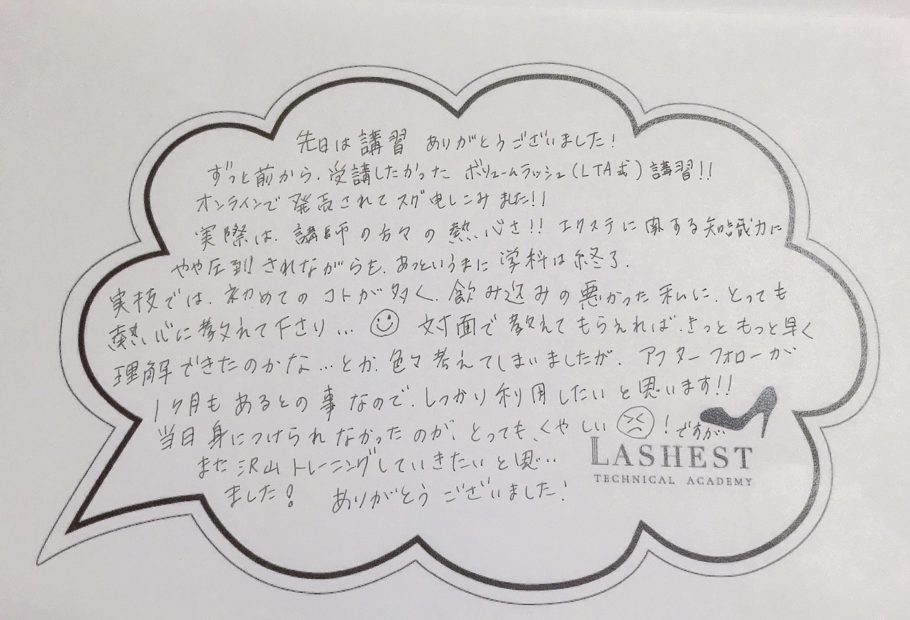 先日は講習 ありがとうございました!
ずっと前から、受講したかった ボリュームラッシュ(LTA式)講習!!
オンラインで発売されてスグ申しこみました!!
実際は、講師の方々の熱心さ!! エクステに関する知識力に
やや圧到されながらも、あっというまに学科は終了.
実技では、初めてのコトが多く、飲み込みの悪かった私に、とっても
熱心に教えて下さり... 対面で教えてもらえれば、きっともっと早く
理解できたのかな...とか、色々考えてしまいましたが、アフターフォローが
1ヶ月もあるとの事なので、しっかり利用したいと思います!!
当日身につけられなかったのが、とっても、くやしい!ですが、
また沢山トレーニングしていきたいと思...
ました! ありがとうございました!
LASHEST
TECHNICAL ACADEMY